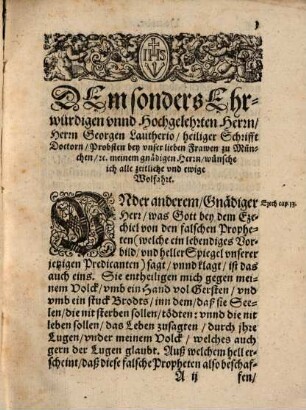 3
IHS
DEm sonders Ehr-
würdigen vnnd Hochgelehrten Herrn/
Herrn Georgen Lautherio/ heiliger Schrifft
Doctorn/ Probsten bey vnser lieben Frawen zu Mün-
chen/ ꝛc. meinem gnädigen Herrn/ wünsche
ich alle zeitliche vnd ewige
Wolfahrt.
VNder anderem/ Gnädiger
Herr/ was Gott bey dem Eze-
chiel von den falschen Prophe-
ten (welche ein lebendiges Vor-
bild/ vnd heller Spiegel vnserer
jetzigen Predicanten) sagt/ vnnd klagt/ ist das
auch eins. Sie entheiligen mich gegen mei-
nem Volck/ vmb ein Hand vol Gersten/ vnd
vmb ein stuck Brodts/ inn dem/ daß sie See-
len/ die nit sterben sollen/ tödten: vnnd die nit
leben sollen/ das Leben zusagten/ durch jhre
Lugen/ vnder meinem Volck/ welches auch
gern der Lugen glaubt. Auß welchem hell er-
scheint/ daß diese falsche Propheten also beschaf-
A ij
fen/
Ezech cap 13.